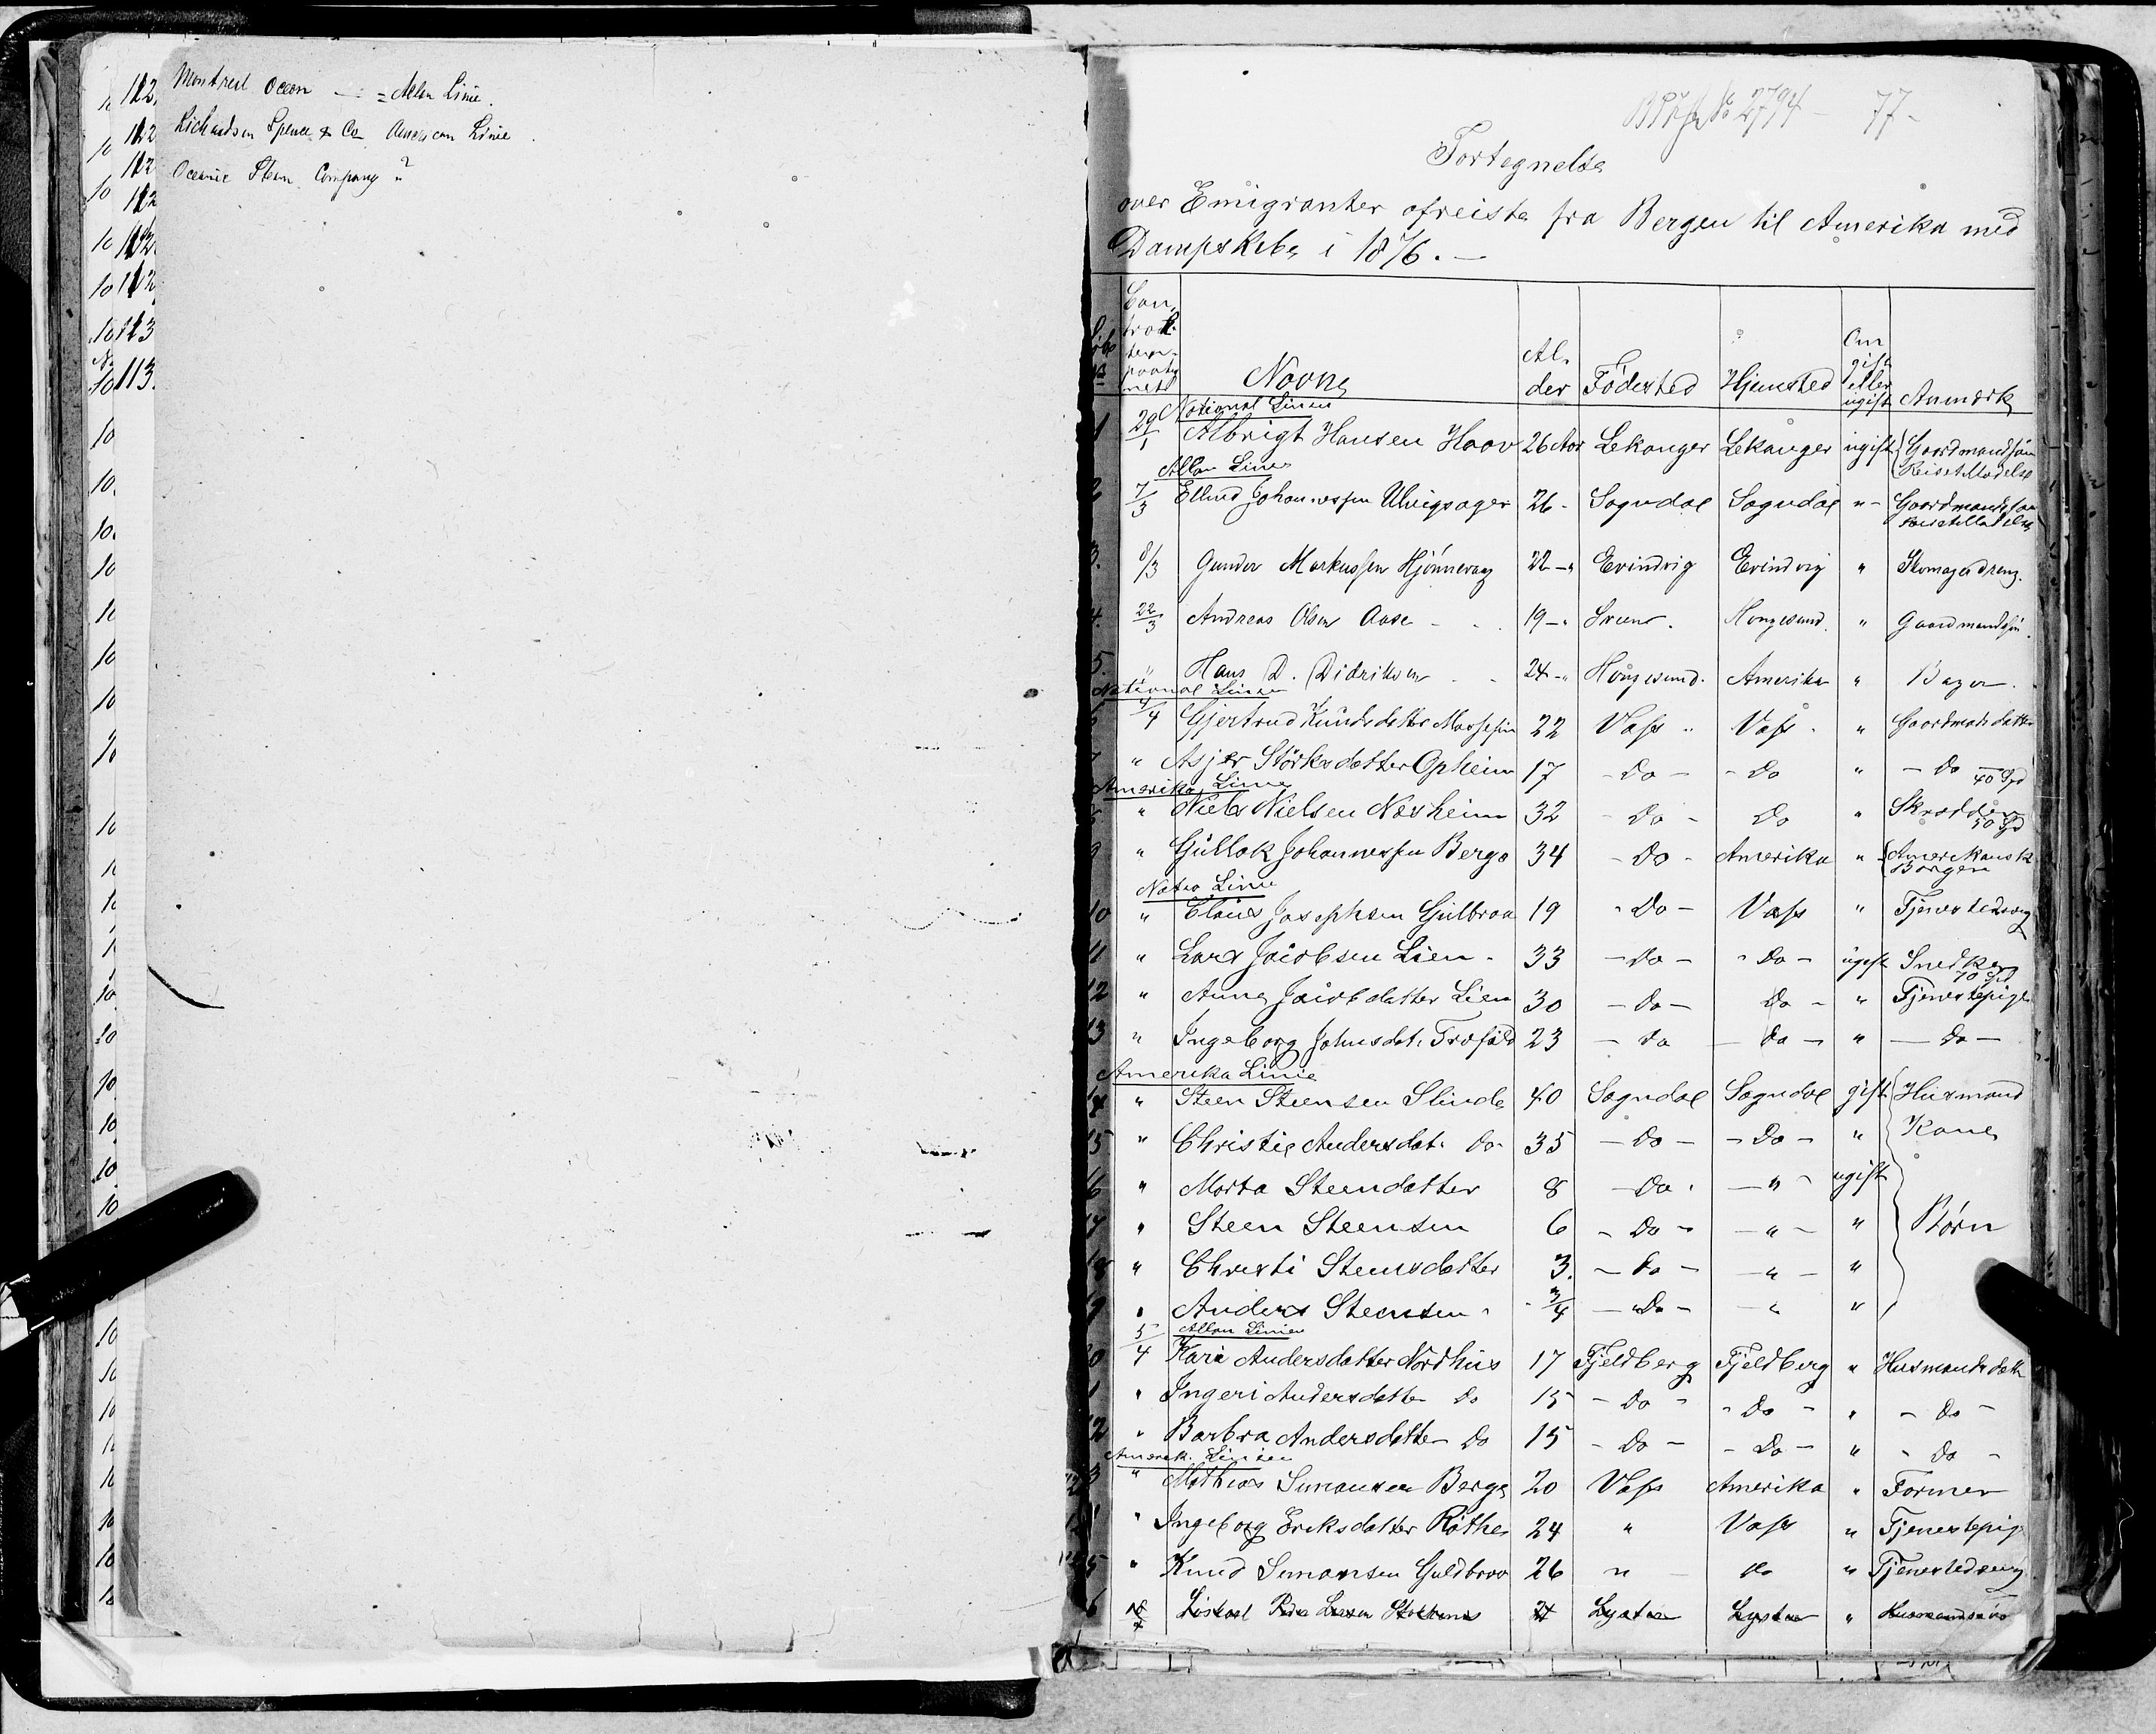 Montreal Ocean — = Allan Linie.
Richardson Spence & Co American Linie.
Oceanic Steam Company ?
No 2794 - 77-
Fortegnelse
over Emigranter afreiste fra Bergen til Amerika med
Dampskibe i 1876.—
Navne Alder Födested Hjemsted Om gift eller ugift Anmærk
National Linien
1 29/1 Albrigt Hansen Haav 26 Aar Lekanger Lekanger ugift Gaardmandsön
Allan Linie
2 7/3 Ellend Johannessen Ulvigsager 26 - Sogndal Sogndal " - Gaardmandsson
3. 8/3 Gunder Markussen Hjönnevaag 22 - " Evindvig Evindvig " Skomagerdreng.
4. 22/3 Andreas Olsen Aase - 19 - " Sveen. Haugesund. " Gaardmandsön.
5. " Hans D. Didriksen - 24 - " Haugesund. Amerika " Bager.
National Linien
6 4/4 Gjertrud Knudsdatter 22 Voss " Voss - " Gaardmds datter
7 " Asjer Störksdatter Opheim 17 - Do - - Do " - Do - 40 Spd
Amerika Linie
8 " Niels Nielsen Nesheim 32 - Do - Do " Skrædder 50 Spd
9 " Gullak Johannessen Bergo 34 - Do - Amerika " Amerikansk Borger
Natio Linie
10 " Claus Josephsen Gulbraa 19 - Do - Voss " Tjenestedreng
11 " Lars Jacobsen Lien - 33 - Do - - Do - ugift Snedker 70 Spd
12 " Anna Jacobdatter Lien 30 - Do - Do - " Tjenestepige
13 " Ingeborg Johnsdat. 23 - Do - Do - " - Do -
Amerika Linie
14 " Steen Steensen Slinde 40 Sogndal Sogndal gift Husmand
15 " Christie Andersdat. Do 35 - Do - - Do - " Kone
16 " Marta Steendatter 8 - Do - - " - ugift
17 " Steen Steensen 6 - Do - - " - " Börn
18 " Christi Steensdatter 3. - Do - - " - "
19 " Anders Steensen - 3/4 - Do - - " "
Allan Linien
20 5/4 Kari Andersdatter Nordhus 17 Fjeldberg Fjeldberg " Husmandsdatt
1 " Ingeri Andersdatter Do 15 - Do - - Do - " - Do -
2 " Barbra Andersdatter Do 15 - Do - - Do - " - Do -
Amerik. Linien
3 " Mathias Simonsen Berge 20 Voss Amerika " Farmer
" Ingeborg Eriksdatter Röthe 24 " Voss " Tjenestepig
5 " Knud Simonsen Guldbraa 26 " - do " Tjenestedreng
6 Lystar Lystar " Husmandsön